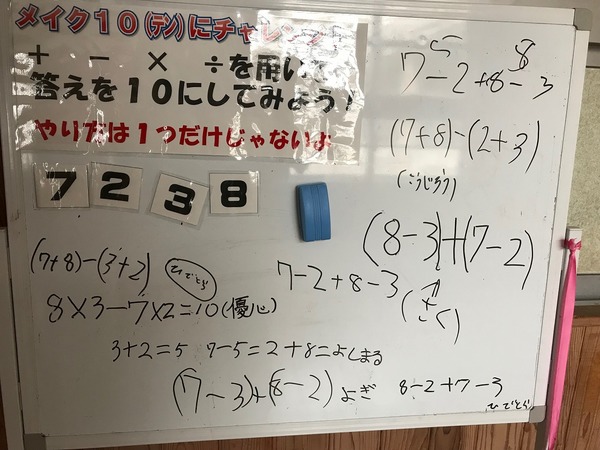 メイク10(テン)にチャレンジ
+ - × ÷を用いて
答えを10にしてみよう!
やり方は1つだけじゃないよ
7 2 3 8
5 8
7-2+8-3
(7+8)-(2+3)
(こうじろう)
(8-3)+(7-2)
(7+8)-(3+2) ひでとら
7-2+8-3
8×3-7×2=10(優心)
3+2=5 7-5=2+8=よしまる
(7-3)+(8-2) よぎ
8-2+7-3
ひでとら